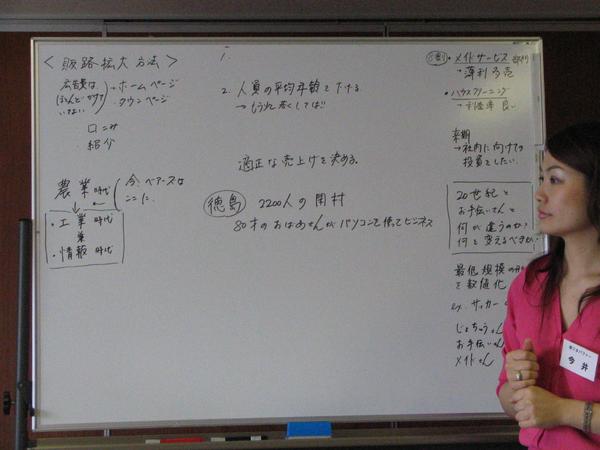 ＜販路拡大方法＞
広告費は
ほとんどかけて
いない
・ホームページ
・タウンページ
口コミ
紹介
農業時代
今、ベアーズは
ここに
・工業時代
・情報時代
1.
2. 人員の平均年齢を下げる。
適正な売上げを決める。
徳島 2200人の
80才のおばあさんがパソコンで使ってビジネス
・メイドサービス
→薄利多売
・ハウスクリーニング
→利益率良い
来期
→社内に向けての
投資としたい。
20世紀と
お手伝いさんと
何が違うのか?
何を変えるべきか
最低規模の
を数値化
ex. サッカー
じょちゅうさん
お手伝いさん
メイドさん
今井